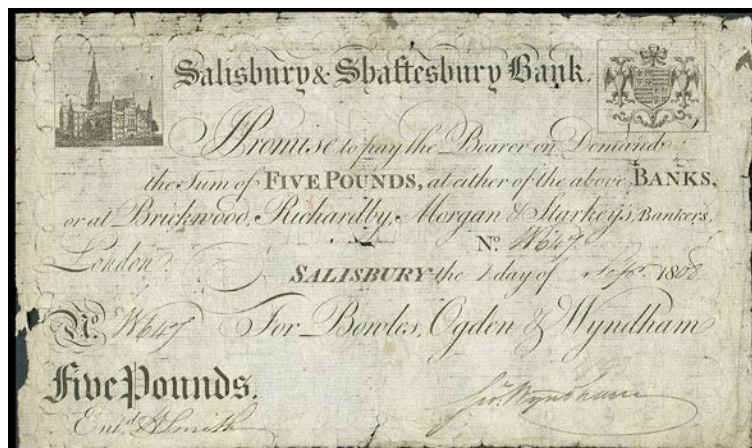 Salisbury & Shaftesbury Bank.
I Promise to pay the Bearer on Demand
the Sum of FIVE POUNDS, at either of the above BANKS,
or at Brickwood, Richardby, Morgan & Starkey's, Bankers,
London.
No. W647
SALISBURY the 1 day of Sepr. 1808
No. W647 For Bowles, Ogden & Wyndham
Five Pounds.
Entd. Smith Wyndham